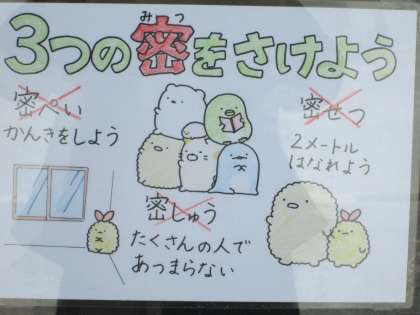 みつ
3つの密をさけよう
密ぺい
かんきをしよう
密しゅう
たくさんの人で
あつまらない
密せつ
2メートル
はなれよう